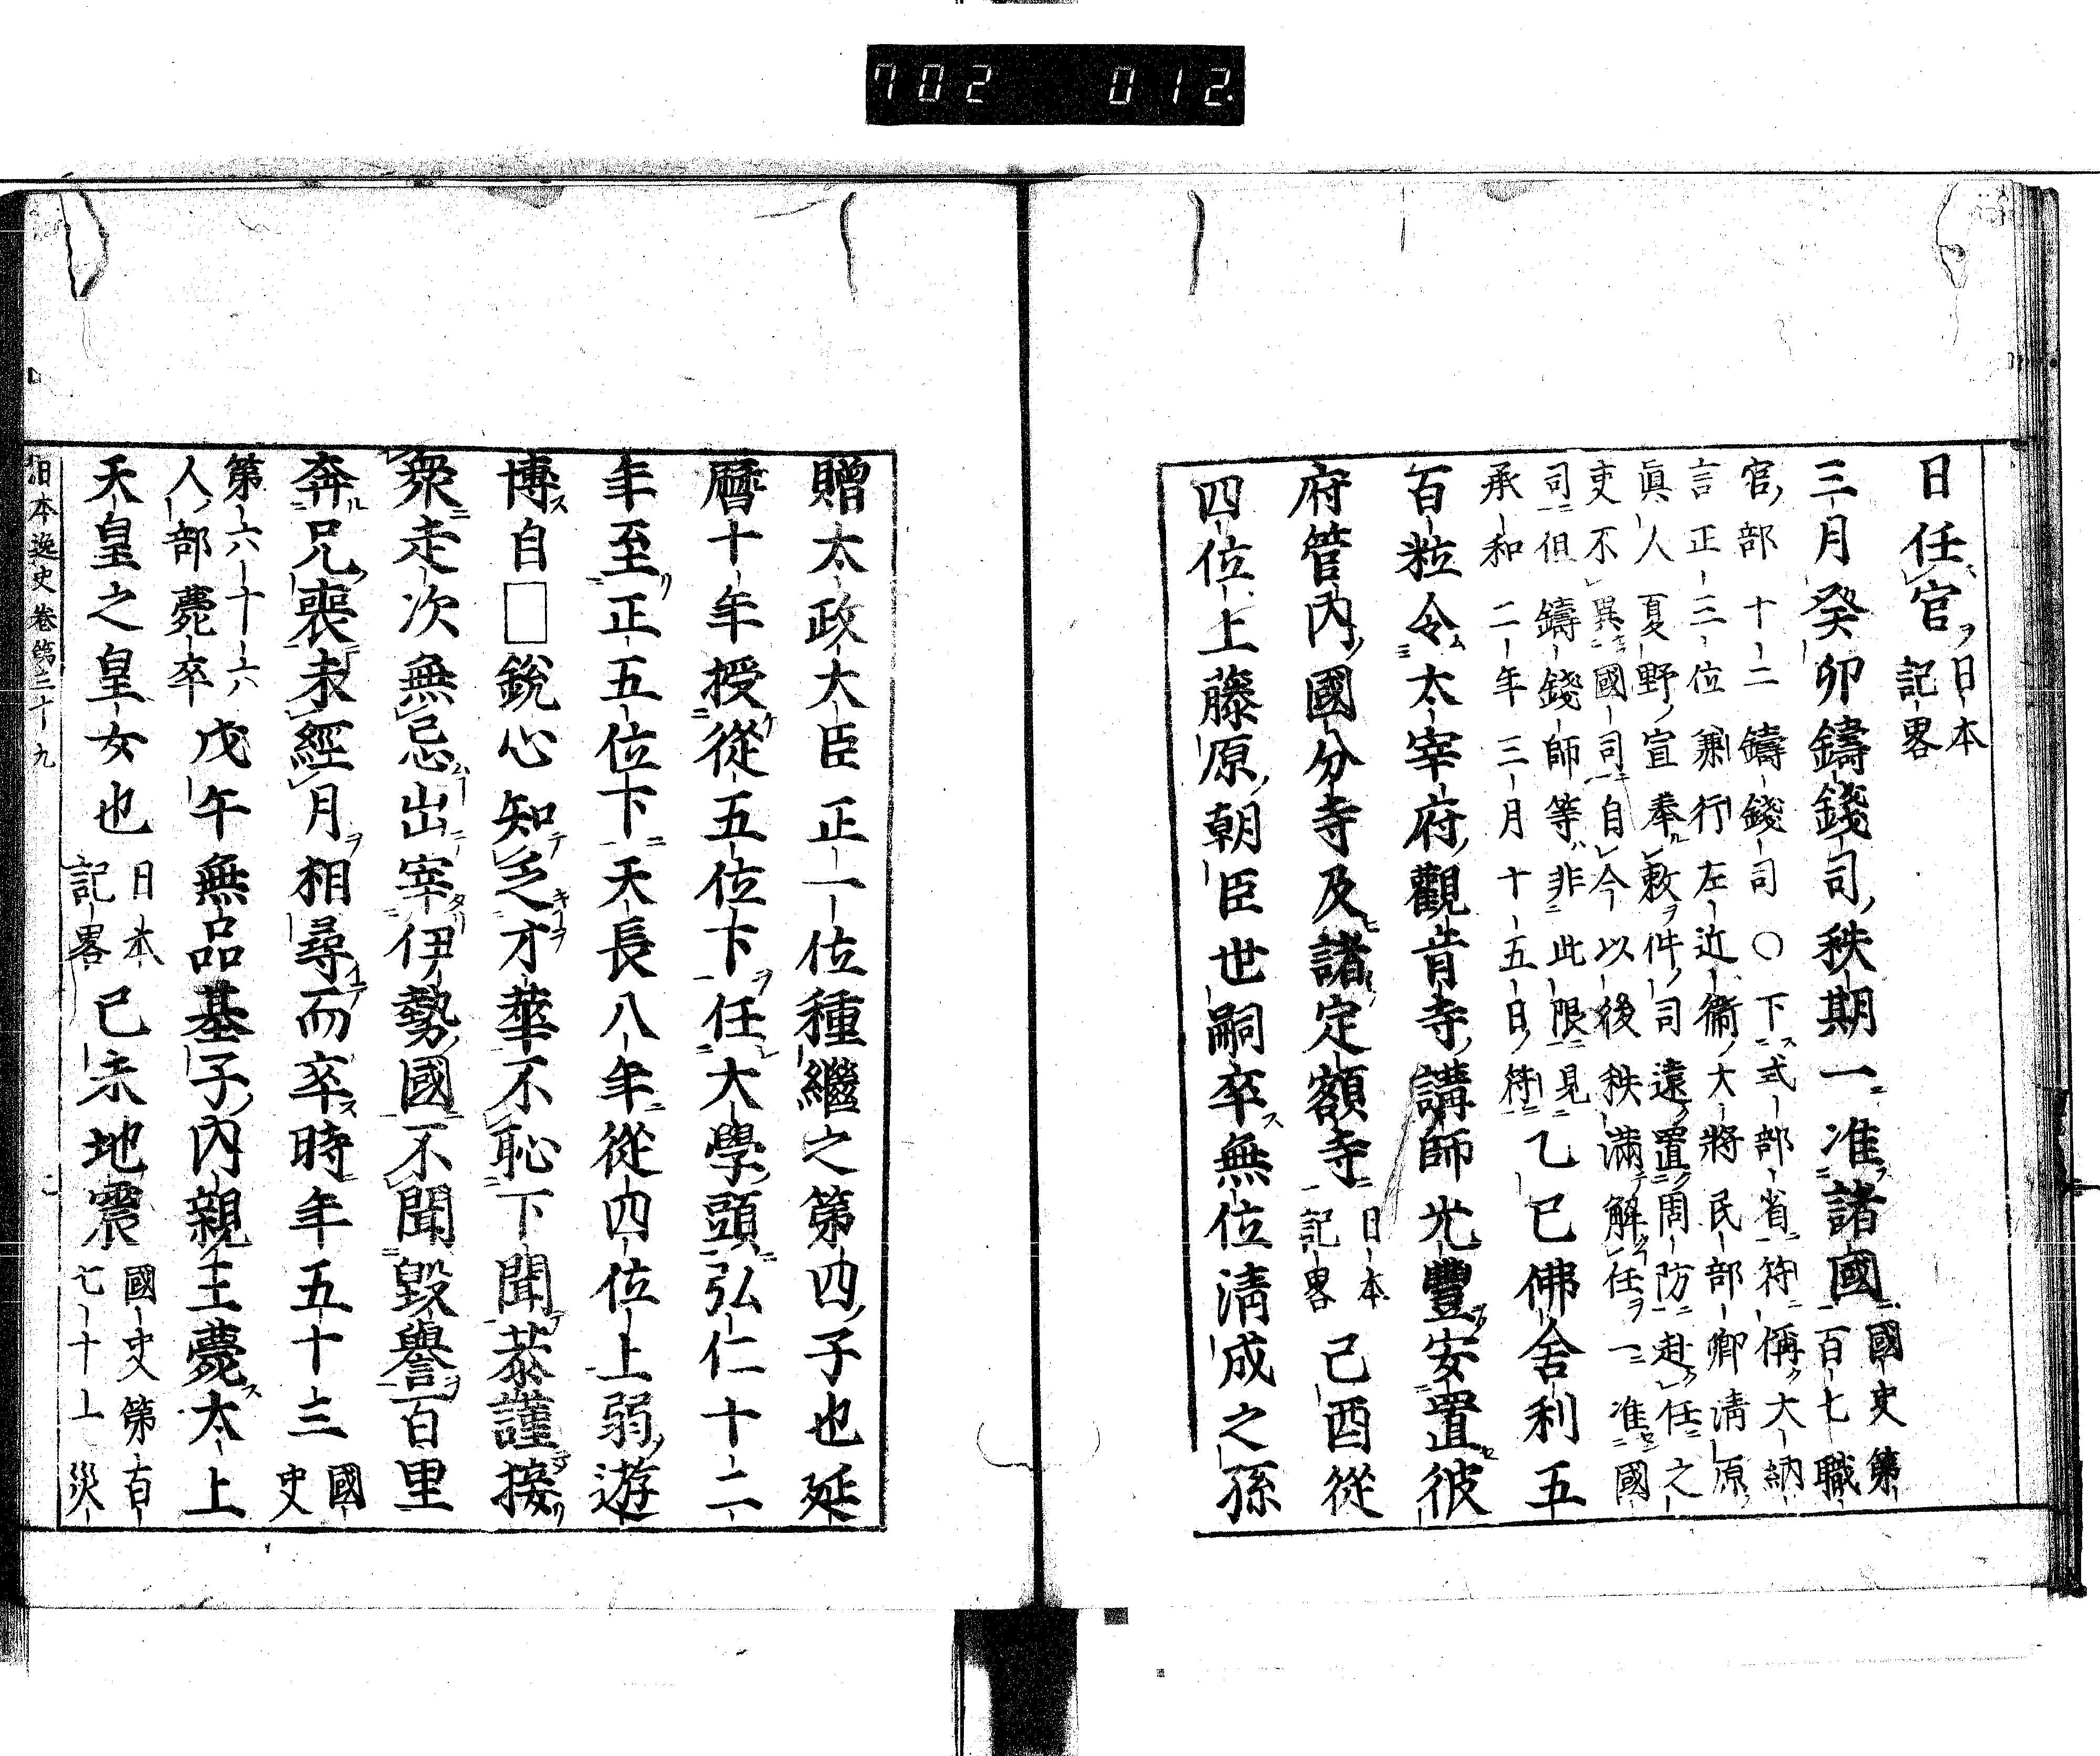 702 012
日任官 日本記畧
三月癸卯鑄錢司秩期一准諸國 國史第一百七職
官部十二鑄錢司〇下式部省符偁大納
言正三位兼行左近衞大將民部卿清原
眞人夏野宣奉敕件司遠置周防赴任之
吏不異國司自今以後秩滿解任一准國
司但鑄錢師等非此限見
承和二年三月十五日符 乙巳佛舍利五
百粒令太宰府觀肯寺講師光豐安置彼
府管內國分寺及諸定額寺 日本記畧 己酉從
四位上藤原朝臣世嗣卒無位清成之孫
贈太政大臣正一位種繼之第四子也延
曆十年授從五位下任大學頭弘仁十二
年至正五位下天長八年從四位上弱遊
博自□銳心知乏才華不恥下聞恭謹接
衆走次無忌出宰伊勢國不聞毀譽百里
奔兄喪未經月相尋而卒時年五十三 國史
第六十六人部薨卒 戊午無品基子內親王薨太上
天皇之皇女也 日本記畧 己未地震 國史第一百七十一災
日本逸史卷第三十九